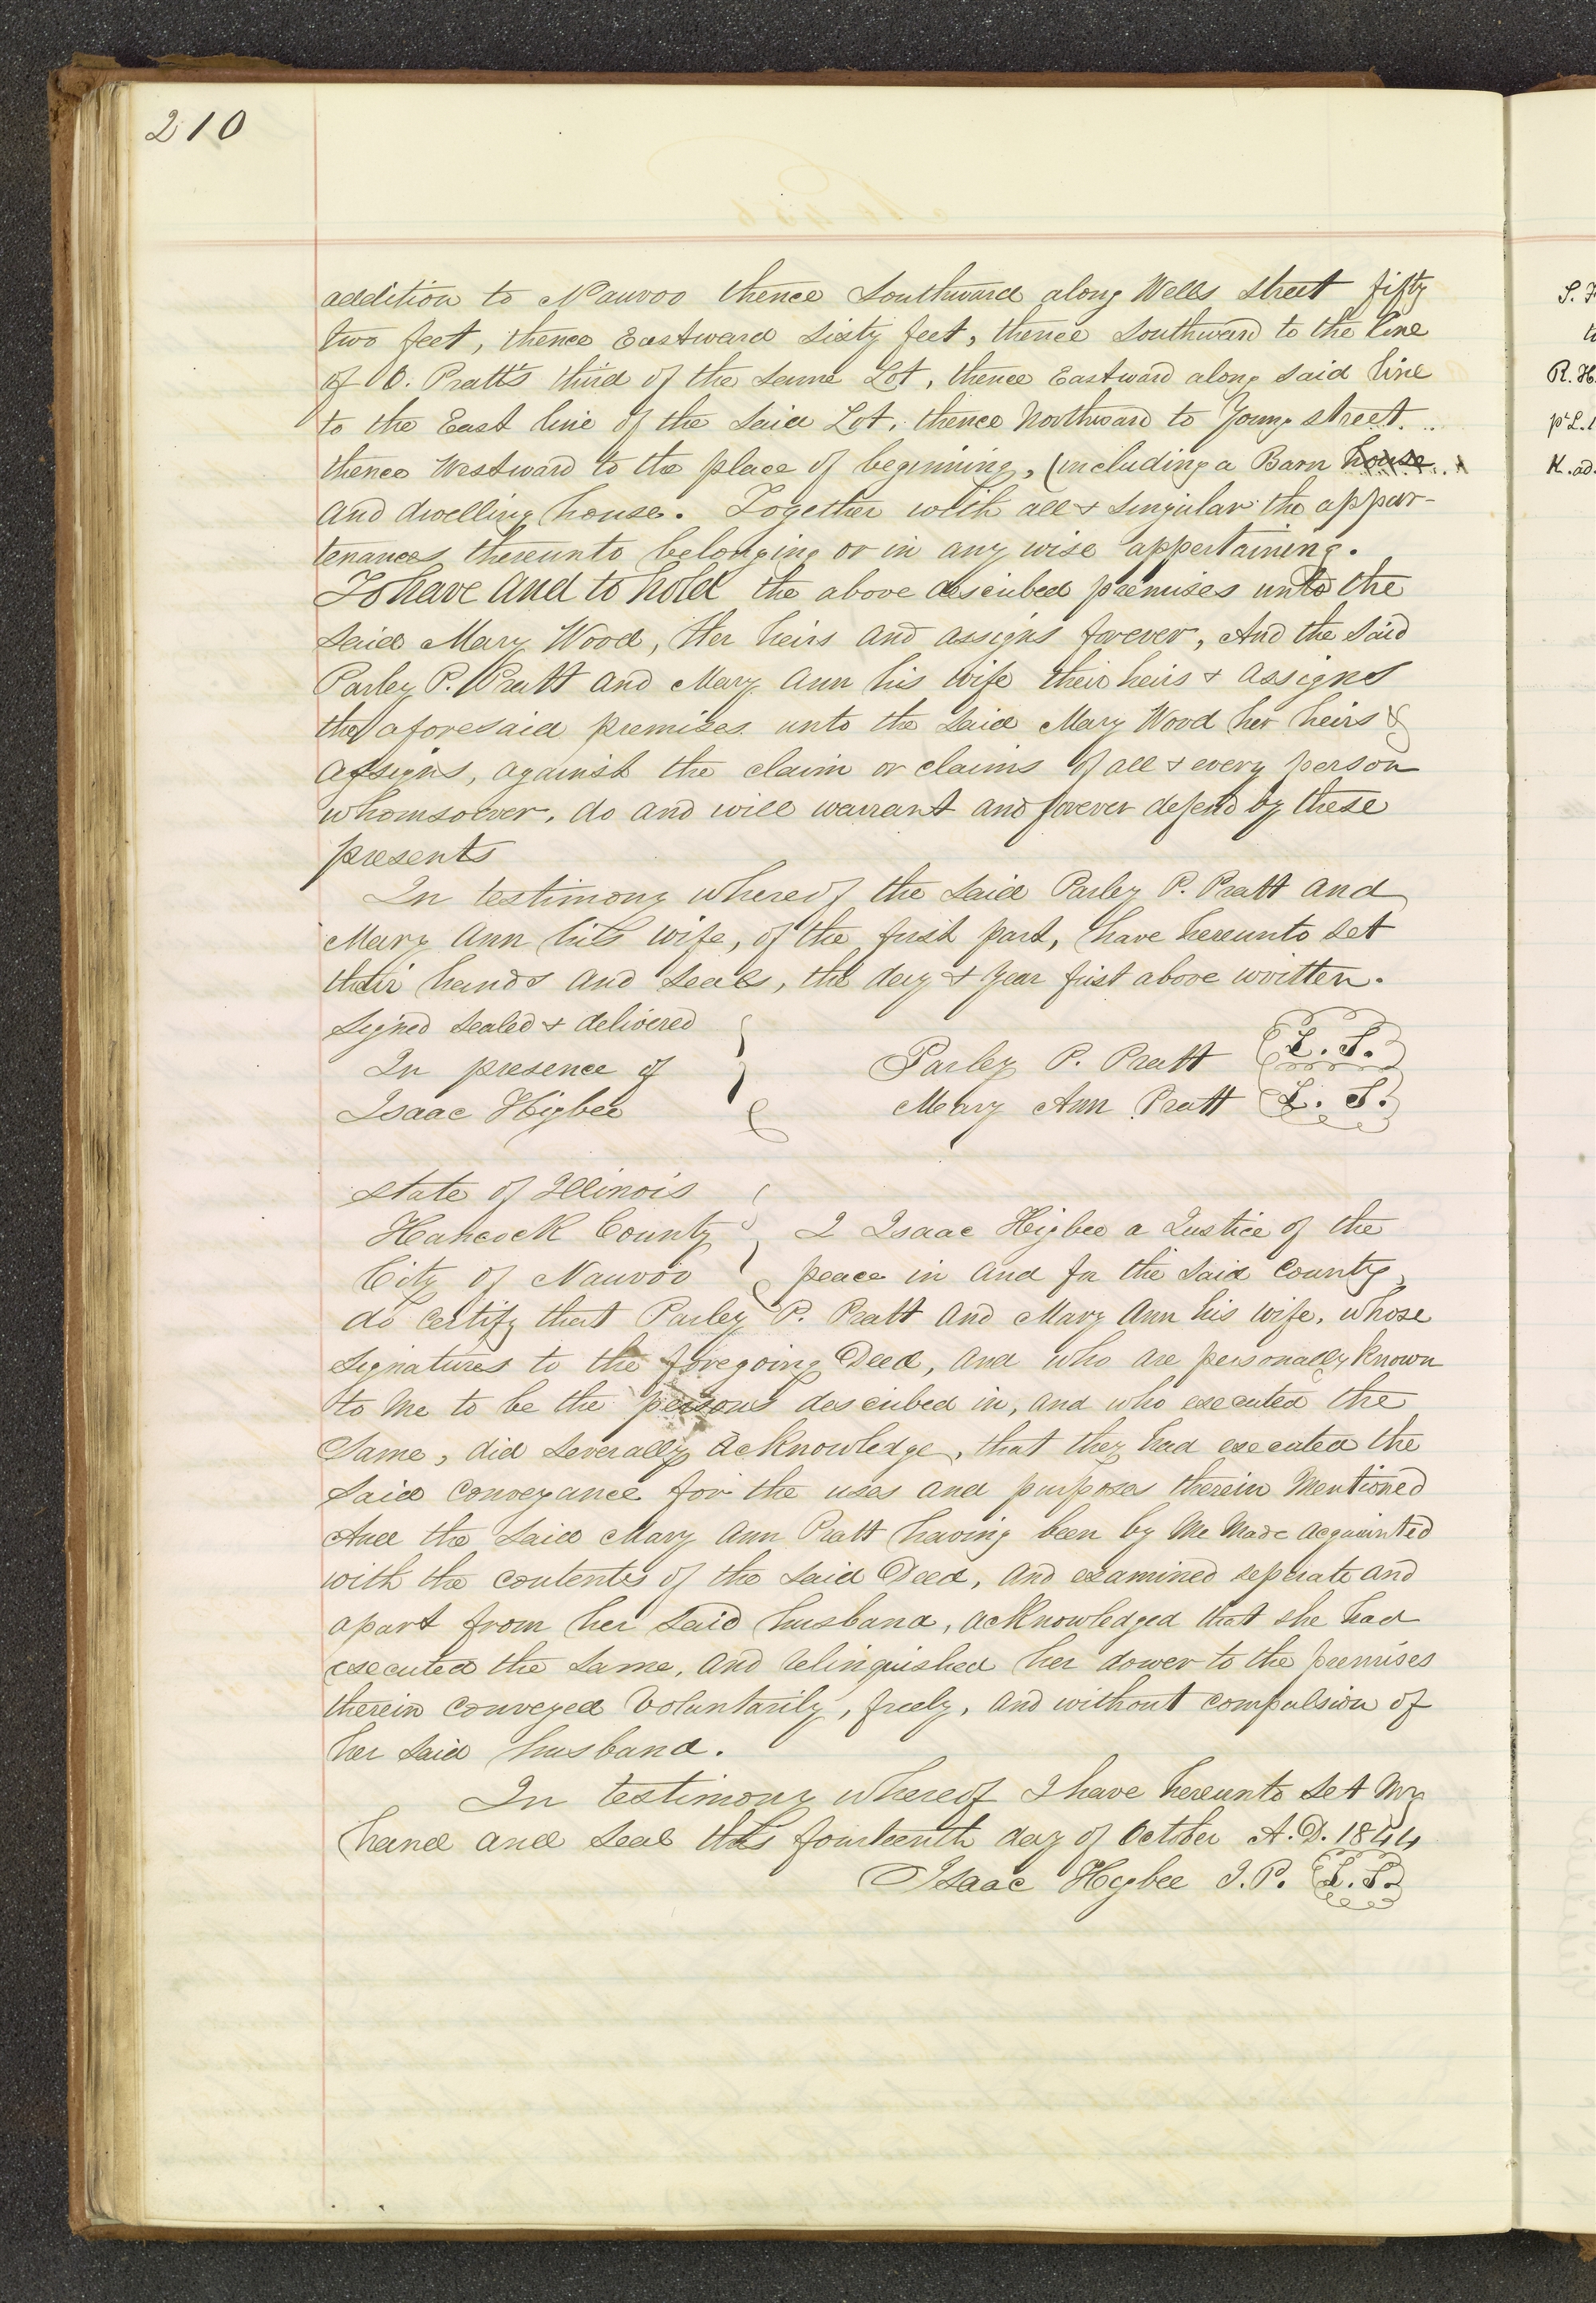 210
addition to Nauvoo thence Southward along Wells Street fifty
two feet, thence Eastward Sixty feet, thence Southward to the line
of O. Pratt's third of the same Lot, thence Eastward along said line
to the East line of the Said Lot, thence Northward to Young street.
thence Westward to the place of beginning, (including a Barn house
and dwelling house. Together with all & Singular the appur-
tenances thereunto belonging or in any wise appertaining.
To have and to hold the above described premises unto the
Said Mary Wood, Her heirs and assigns forever, And the Said
Parley P. Pratt and Mary Ann his wife their heirs & assigns
the aforesaid premises unto the Said Mary Wood her heirs &
assigns, against the claim or claims of all & every person
whomsoever, do and will warrant and forever defend by these
presents
In testimony whereof the Said Parley P. Pratt and
Mary Ann his wife, of the first part, have hereunto Set
their hands and Seals, the day & year first above written.
Signed Sealed & delivered
In presence of
Isaac Higbee
Parley P. Pratt L. S.
Mary Ann Pratt L. S.
State of Illinois
Hancock County I Isaac Higbee a Justice of the
City of Nauvoo peace in and for the Said County,
do certify that Parley P. Pratt and Mary Ann his wife, whose
Signatures to the foregoing Deed, and who are personally known
to me to be the persons described in, and who executed the
Same, did Severally acknowledge, that they had executed the
Said Conveyance for the uses and purposes therein Mentioned
And the Said Mary Ann Pratt having been by Me Made acquainted
with the contents of the Said Deed, and examined seperate and
apart from her Said husband, acknowledged that she had
executed the Same, and relinquished her dower to the premises
therein conveyed Voluntarily, freely, and without compulsion of
her Said husband.
In testimony whereof I have hereunto Set My
hand and Seal this fourteenth day of October A.D. 1844
Isaac Higbee J.P. L. S.
R. H.